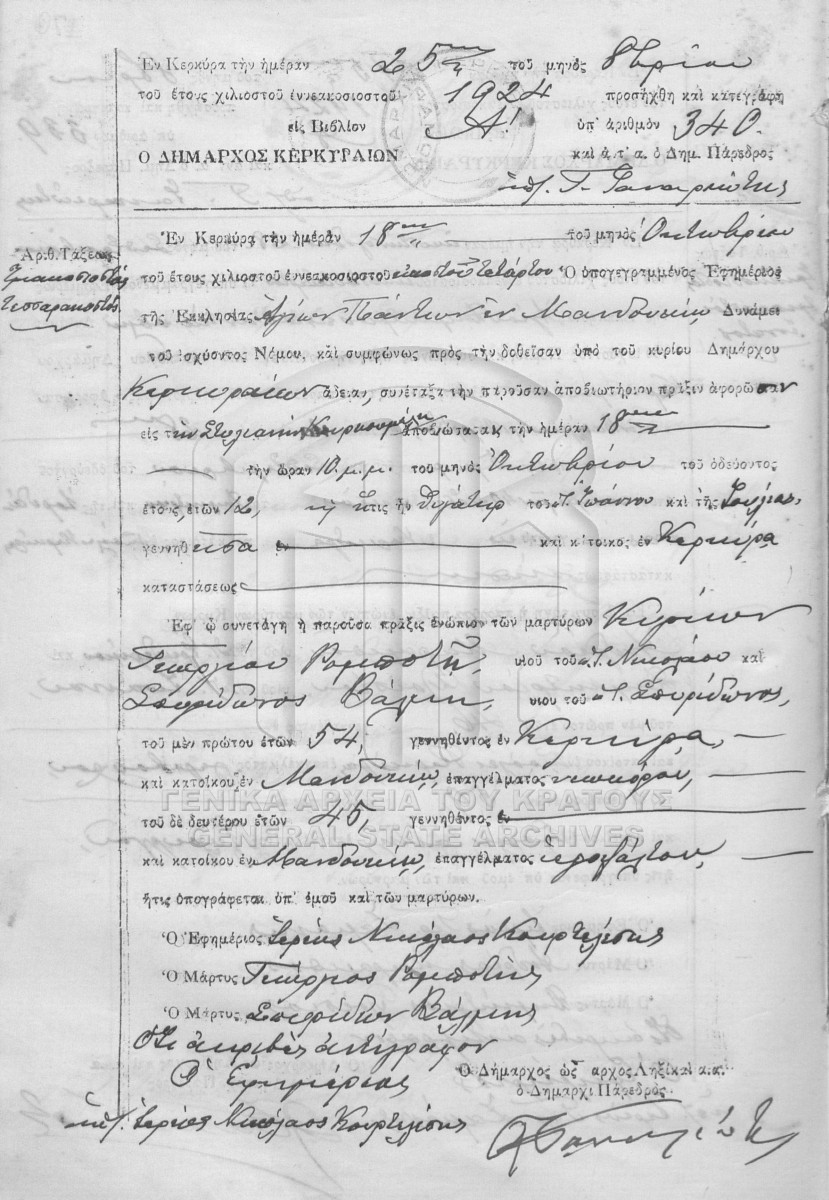 Ἐν Κερκύρᾳ τὴν ἡμέραν 25ην τοῦ μηνὸς 8βρίου
τοῦ ἔτους χιλιοστοῦ ἐννεακοσιοστοῦ 1924 προσήχθη καὶ κατεγράφη
εἰς Βιβλίον Α! ὑπ' ἀριθμὸν 340.
Ο ΔΗΜΑΡΧΟΣ ΚΕΡΚΥΡΑΙΩΝ καὶ ἀ.τ'α. ὁ Δημ. Πάρεδρος
Ἐν Κερκύρᾳ τὴν ἡμέραν 18ην τοῦ μηνὸς Ὀκτωβρίου
Ἀρ.θ. Τάξεως
Τριακοσιοστὸς
τεσσαρακοστὸς
τοῦ ἔτους χιλιοστοῦ ἐννεακοσιοστοῦ εἰκοστοῦ τετάρτου Ὁ ὑπογεγραμμένος Ἐφημέριος
τῆς Ἐκκλησίας Ἁγίων Πάντων ἐν Μανδουκίῳ, Δυνάμει
τοῦ ἰσχύοντος Νόμου, καὶ συμφώνως πρὸς τὴν δοθεῖσαν ὑπὸ τοῦ κυρίου Δημάρχου
Κερκυραίων ἄδειαν, συνέταξα τὴν παροῦσαν ἀποβιωτήριον πρᾶξιν ἀφορῶσαν
εἰς τὴν Στυλιανὴν ἀποβιώσασαν τὴν ἡμέραν 18ην
τὴν ὥραν 10 μ.μ. τοῦ μηνὸς Ὀκτωβρίου τοῦ ὁδεύοντος
ἔτους, ἐτῶν 12, ἥτις ἦν θυγάτηρ τοῦ Ἰωάννου καὶ τῆς Ἰουλίας,
γεννηθεῖσα ἐν καὶ κάτοικος ἐν Κερκύρᾳ
καταστάσεως
Ἐφ' ᾧ συνετάγη ἡ παροῦσα πρᾶξις ἐνώπιον τῶν μαρτύρων Κυρίων
Γεωργίου Ρομποτῆ, υἱοῦ τοῦ Νικολάου καὶ
Σπυρίδωνος Βάλμη, υἱοῦ τοῦ Σπυρίδωνος,
τοῦ μὲν πρώτου ἐτῶν 54, γεννηθέντος ἐν Κερκύρᾳ,
καὶ κατοίκου ἐν Μανδουκίῳ, ἐπαγγέλματος νεωκόρου,
ΓΕΝΙΚΑ ΑΡΧΕΙΑ ΤΟΥ ΚΡΑΤΟΥΣ
τοῦ δὲ δευτέρου ἐτῶν 45, γεννηθέντος ἐν
GENERAL STATE ARCHIVES
καὶ κατοίκου ἐν Μανδουκίῳ, ἐπαγγέλματος ἱεροψάλτου,
ἥτις ὑπογράφεται ὑπ' ἐμοῦ καὶ τῶν μαρτύρων.
Ὁ Ἐφημέριος Ἱερεὺς Νικόλαος Κουρτελέσης
Ὁ Μάρτυς Γεώργιος Ρομποτῆς
Ὁ Μάρτυς Σπυρίδων Βάλμης
Ὅτι ἀκριβὲς ἀντίγραφον
Ὁ Ἐφημέριος
Ὁ Δήμαρχος ὡς ἀρχος Ληξικαὶ α.α.
ὁ Δημαρχι Πάρεδρος
ὑπ. Ἱερεὺς Νικόλαος Κουρτελέσης